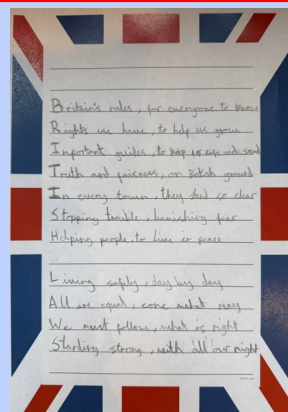 Britain's rules, for everyone to know
Rights we have, to help us grow
Important guides, to keep us safe and sound
Truth and fairness, on British ground
In every town, they stand so clear
Stopping trouble, banishing fear
Helping people, to live in peace
Living safely, day by day
All are equal, come what may
We must follow, what is right
Standing strong, with all our might